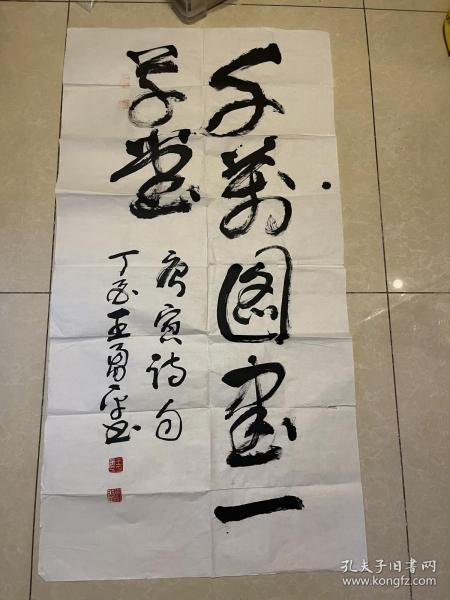 千万图书一
草堂
唐寅诗句
丁亥王勇平书
孔夫子旧书网
www.kongfz.com